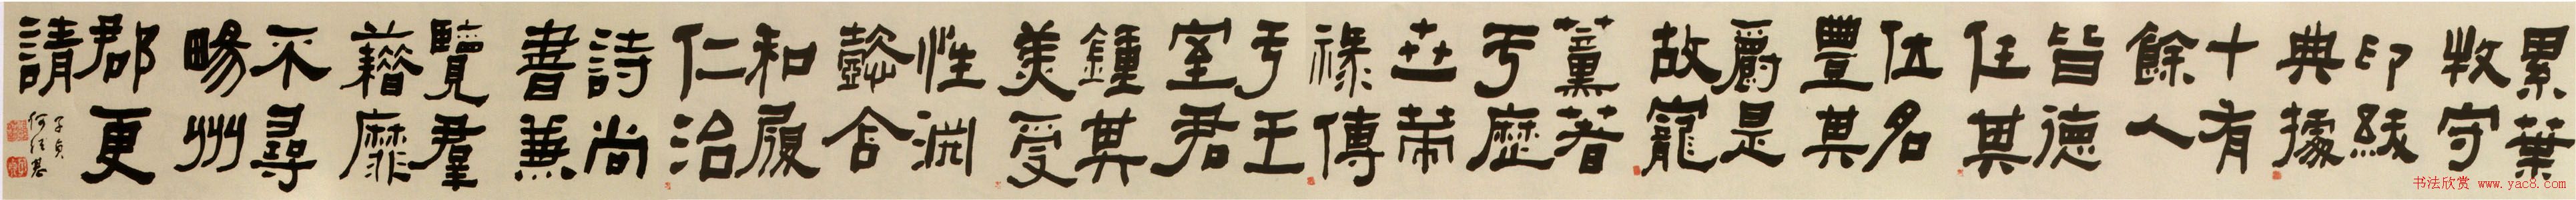 累葉
牧守
印紱
典據
十有
餘人
皆德
任其
位名
豐其
爵是
故寵
薰著
于歷
世策
祿傳
于王
室君
鍾其
美受
性淵
懿含
和履
仁治
詩尚
書兼
覽羣
藉靡
不尋
暘州
郡更
請
子貞
何紹基
书法欣赏 www.yac8.com